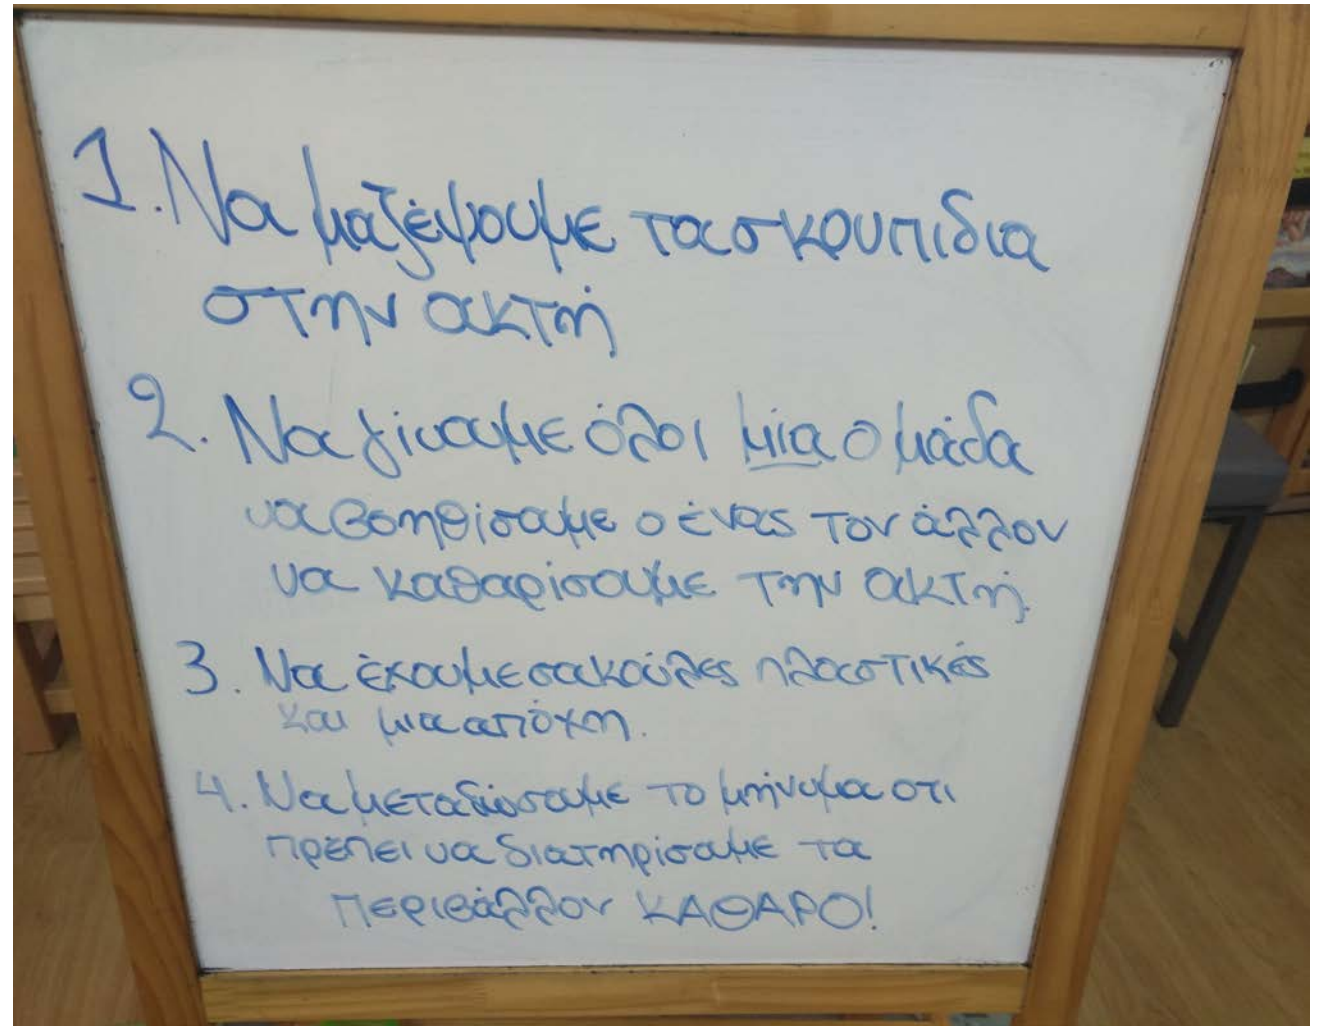 1. Να μαζέψουμε τα σκουπίδια
στην ακτή
2. Να γίνουμε όλοι μία ομάδα
να βοηθήσουμε ο ένας τον άλλον
να καθαρίσουμε την ακτή.
3. Να έχουμε σακούλες πλαστικές
και μια απόχη.
4. Να μεταδώσουμε το μήνυμα οτι
πρέπει να διατηρίσουμε τα
περιβάλλον ΚΑΘΑΡΟ!